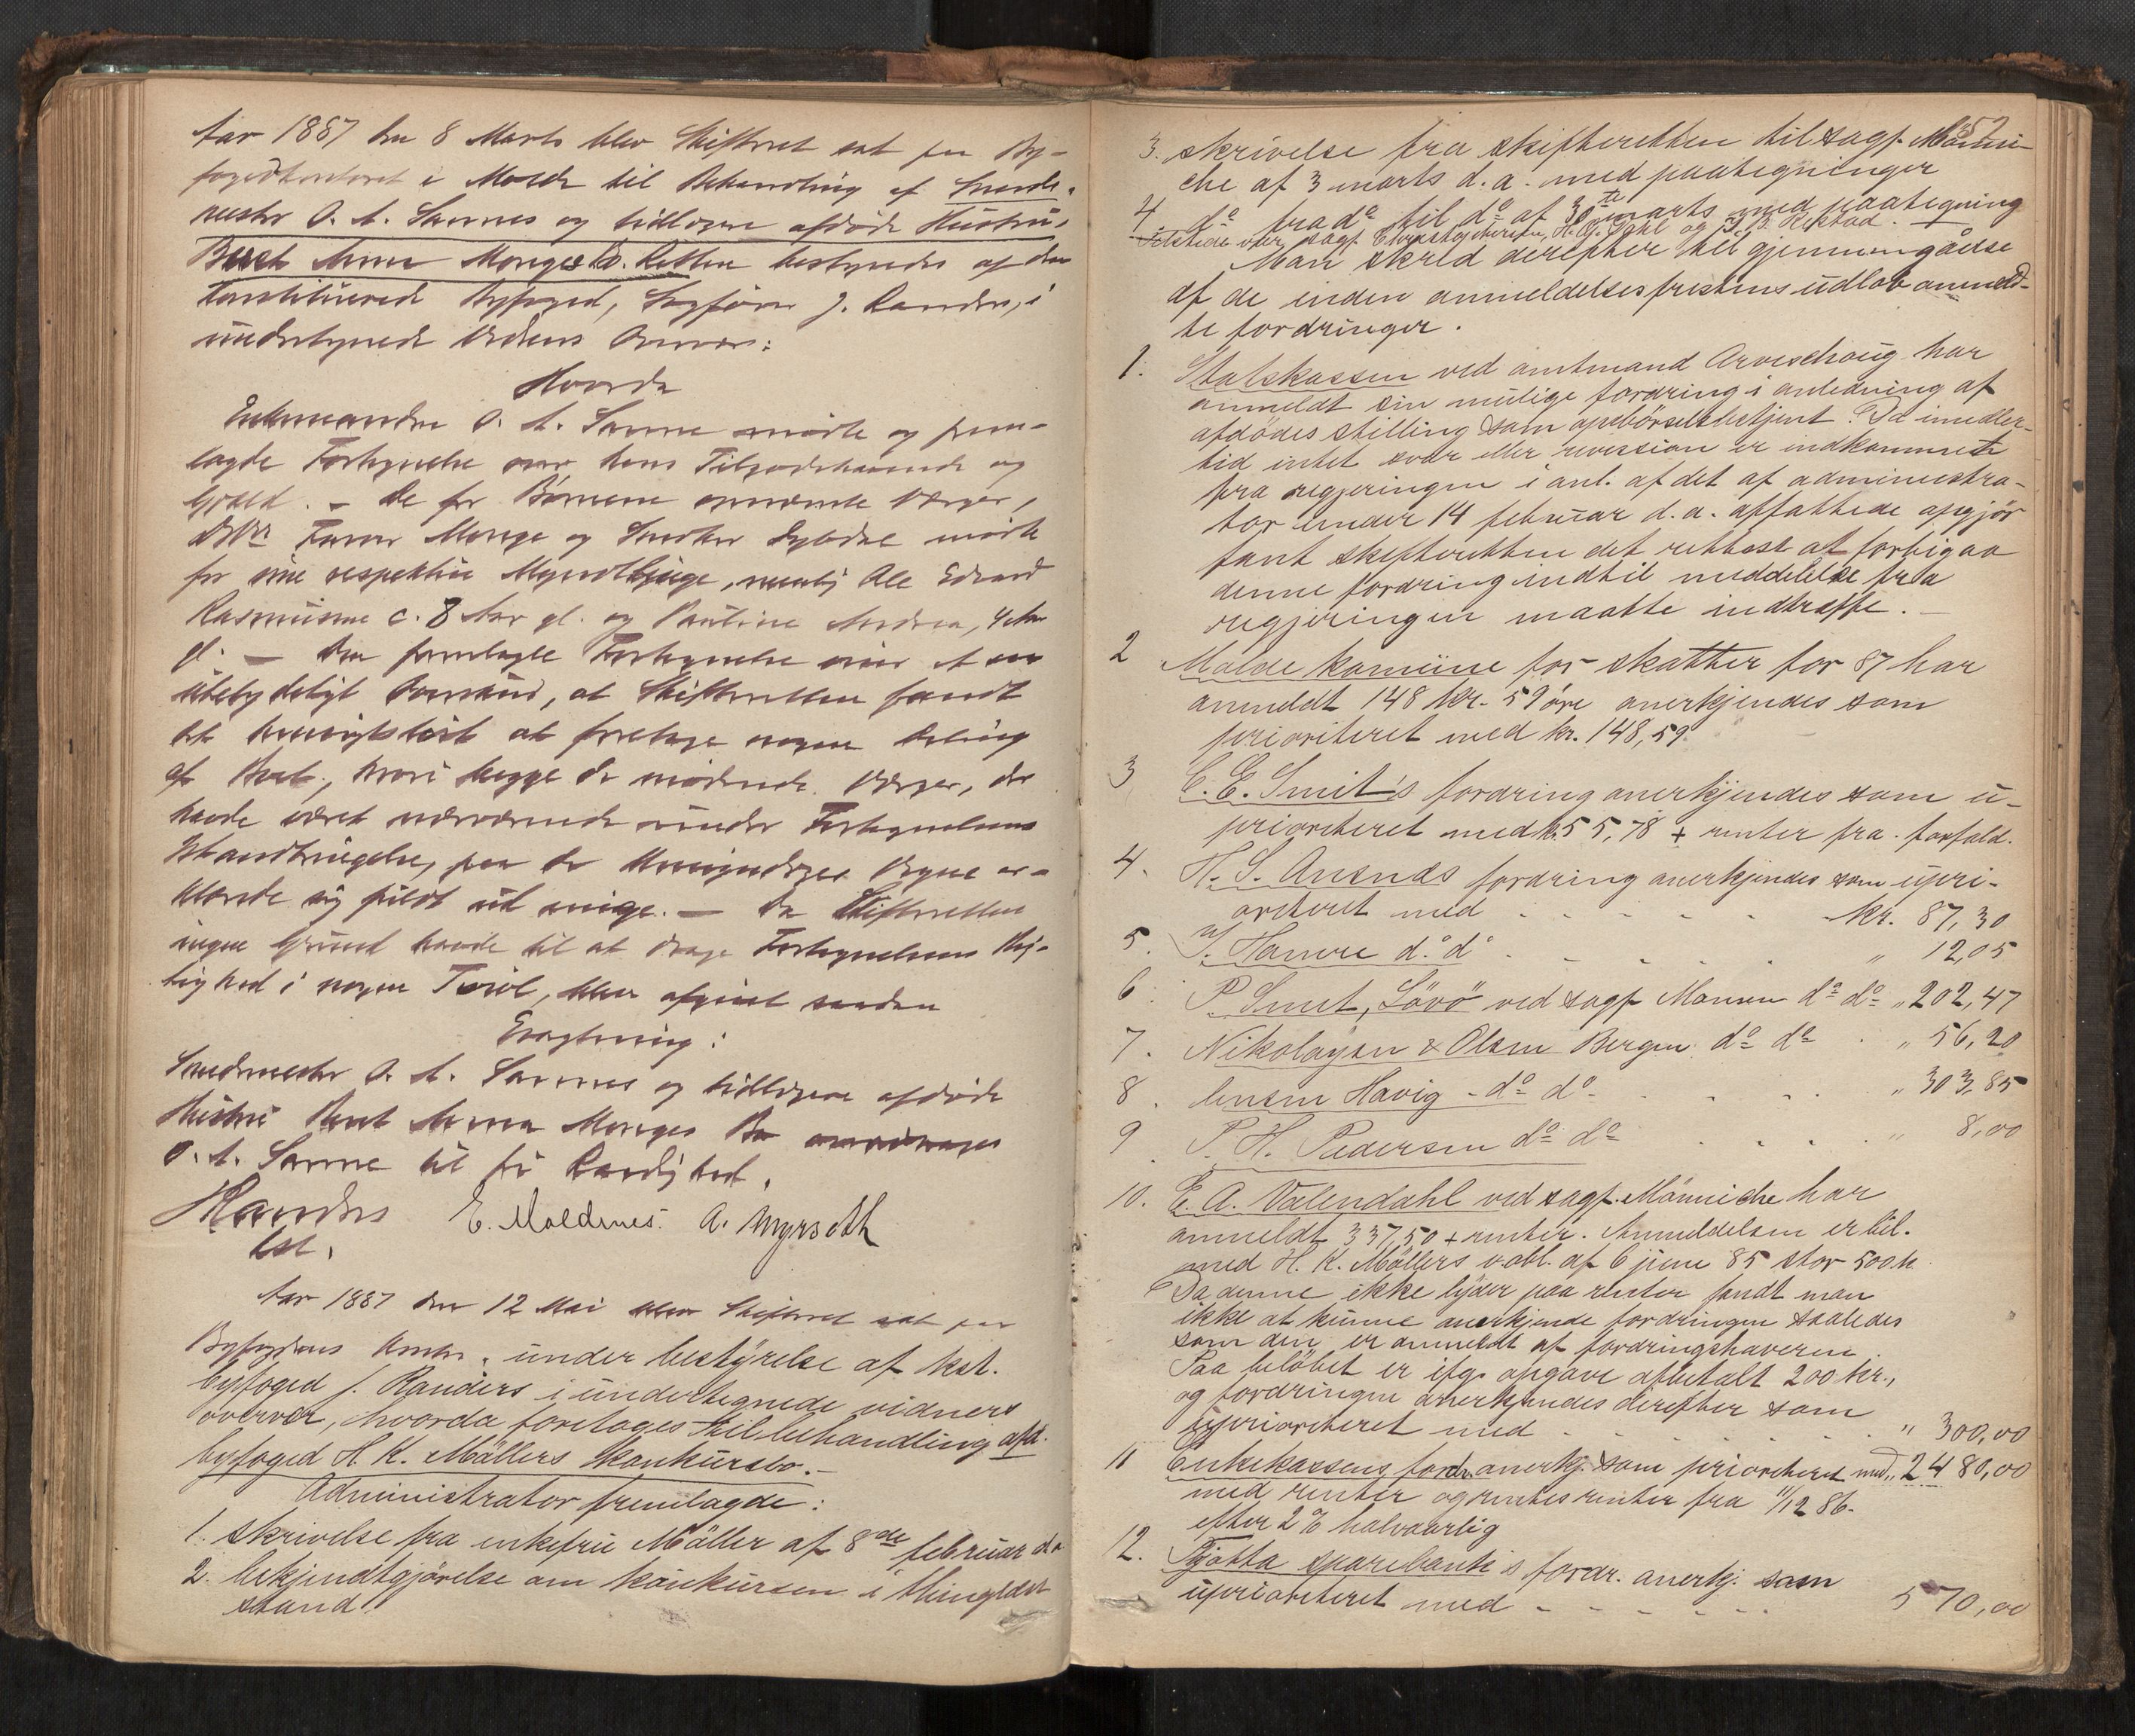 Aar 1887 den 8 Marts blev Skifteret sat paa By-
fogedkontoret i Molde til Behandling af Smede-
mester O. A. Sannes og tidligere afdøde Hustru
Berit Anna Monges Bo. Retten bestyredes af den
konstituerede Byfoged, Sagfører J. Randers, i
undertegnede Vidners Overvær:
Hvorda
Enkemanden O. A. Sanne mødte og frem-
lagde Fortegnelse over hans Tilgodehavende og
Gjæld. – De for Børnene opnævnte Værger,
Monge og mødte
for sine respektive Myndtlinge, nemlig Ole Edvard
Rasmusine c. 8 Aar gl. og Pauline Andrea, 4 Aar
gl. – Den fremlagte Fortegnelse viser et saa
ubetydeligt Overskud, at Skifteretten fandt
det hensigtsløst at foretage nogen Deling
af Boet, hvori begge de mødende Værger, der
havde været nærværende under Fortegnelsens
Istandbringelse, paa de Umyndiges Vegne er-
klærede sig fuldt ud enige. – Da Skifteretten
ingen Grund havde til at drage Fortegnelsens Rig-
tighed i nogen Tvivl, blev afgivet saadan
Eragtning:
Smedemester O. A. Sannes og tidligere afdøde
Hustru Berit Anna Monges Bo overdrages
O. A. Sanne til fri Raadighed.
JRanders E. Moldenes. A. Myrseth
kst.
Aar 1887 den 12 Mai blev Skifteret sat paa
Byfogdens Kontor, under bestyrelse af kst.
byfoged J. Randers i undertegnede vidners
overvær, hvorda foretages til behandling afd.
byfoged H. K. Möllers Konkursbo.–
Administrator fremlagde:
1. skrivelse fra enkefru Möller af 8de februar d.a
2. bekjendtgjörelse om konkursen i thinglæst
stand.
52
3. skrivelse fra skifteretten til sagf. Mönni-
che af 3 marts d.a. med paategninger
4. do fra do til do af 30te marts med paategning
Tilstede var sagf. H. O. Dahl og P. B. Rekstad.
Man skred derefter til gjennemgåelse
af de inden anmeldelsesfristens udlöb anmeld-
te fordringer.
1. Statskassen ved amtmand Arveschoug har
anmeldt sin mulige fordring i anledning af
afdödes stilling som opebörselsbetjent. Da imidler-
tid intet svar eller revision er indkommet
fra regjeringen i anl. af det af administra-
tor under 14 februar d.a. affattede opgjör
fant skifteretten det rettest at forbigaa
denne fordring indtil meddelelse fra
regjeringen maatte indtræffe.–
2 Molde komüne for skatter for 87 har
anmeldt 148 kr. 59 öre anerkjendes som
prioriteret med kr. 148,59
3 C. E. Smit's fordring anerkjendes som u-
prioriteret med kr. 55,78 + renter fra forfald.
4. H. S. Ansnæs fordring anerkjendes som upri-
oriteret med - - - - - kr. 87,30
5. J. Hanvre do do - - - - - „ 12,05
6. P. Smit, Lövö ved sagf. Mannen do do „ 202,47
7. Nikolaysen & Olsen Bergen do do . „ 56,20
8. Havig - do do - - - - „ 303,85
9. P. H. Pedersen do do - - - „ 8,00
10. E. A. Valendahl ved sagf. Mönniche har
anmeldt 337,50 + renter. Anmeldelsen er bil.
med H. K. Möllers v.obl. af 6 june 85 stor 500 kr
Da denne ikke lyder paa renter fandt man
ikke at kunne anerkjende fordringen saaledes
som den er anmeldt af fordringshaveren.
Paa belöbet er ifg. opgave afbetalt 200 kr.,
og fordringen anerkjendes derefter som
uprioriteret med - - - - - „ 300,00
11 Enkekassens fordr. anerkj. som prioriteret med „ 2480,00
med renter og rentes renter fra 11/12 86.
efter 2 % halvaarlig
12. Tjøtta sparebank's fordr. anerkj. som
uprioriteret med - - - - - - 570,00